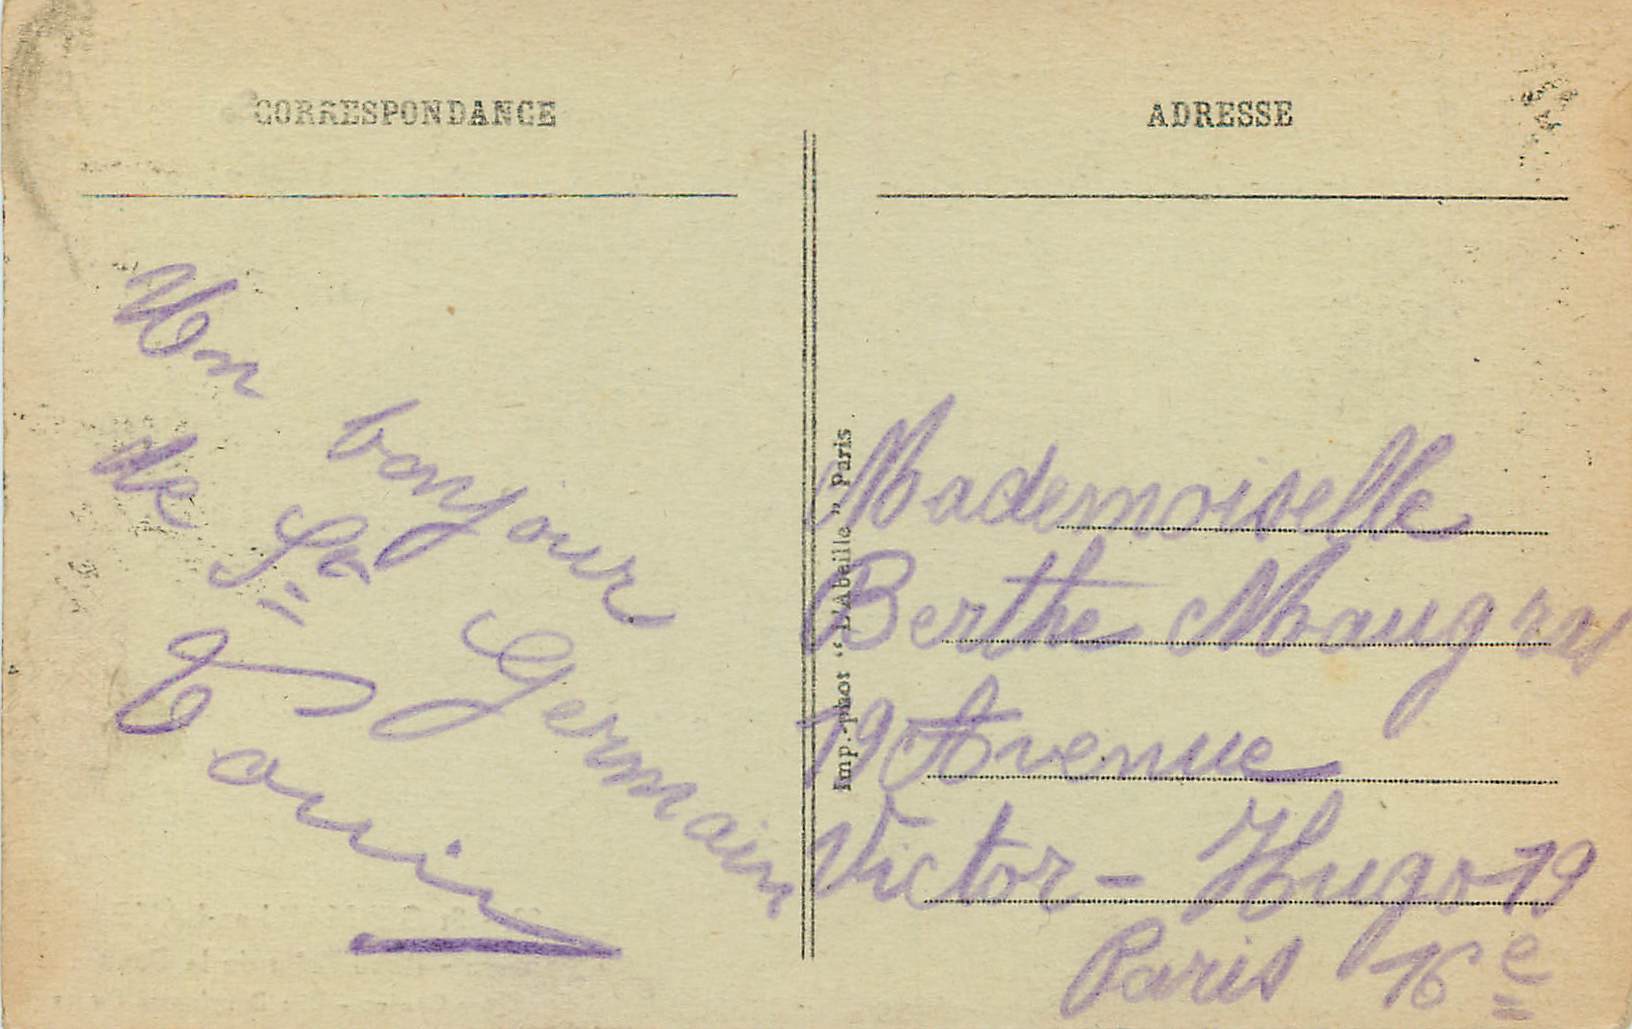 CORRESPONDANCE
Un bonjour
de St Germain
ADRESSE
Imp.-phot "L'Abeille" Paris
Mademoiselle
Berthe Maugras
19 Avenue
Victor-Hugo 19
Paris 16e